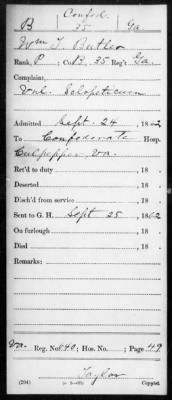 Confed.
B 35 Ga.
Wm T. Butler
Rank, P; Co B, 35 Reg't Ga.
Complaint,
Vul. Sclopeticum
Admitted Sept. 24, 1862
To Confederate Hosp.
Culpepper, Va.
Ret'd to duty , 18
Deserted , 18
Disch'd from service , 18
Sent to G. H. Sept 25, 1862
On furlough , 18
Died , 18
Remarks:
Va. Reg. No. 40; Hos. No. ; Page 49
Taylor
(204) Copyist.